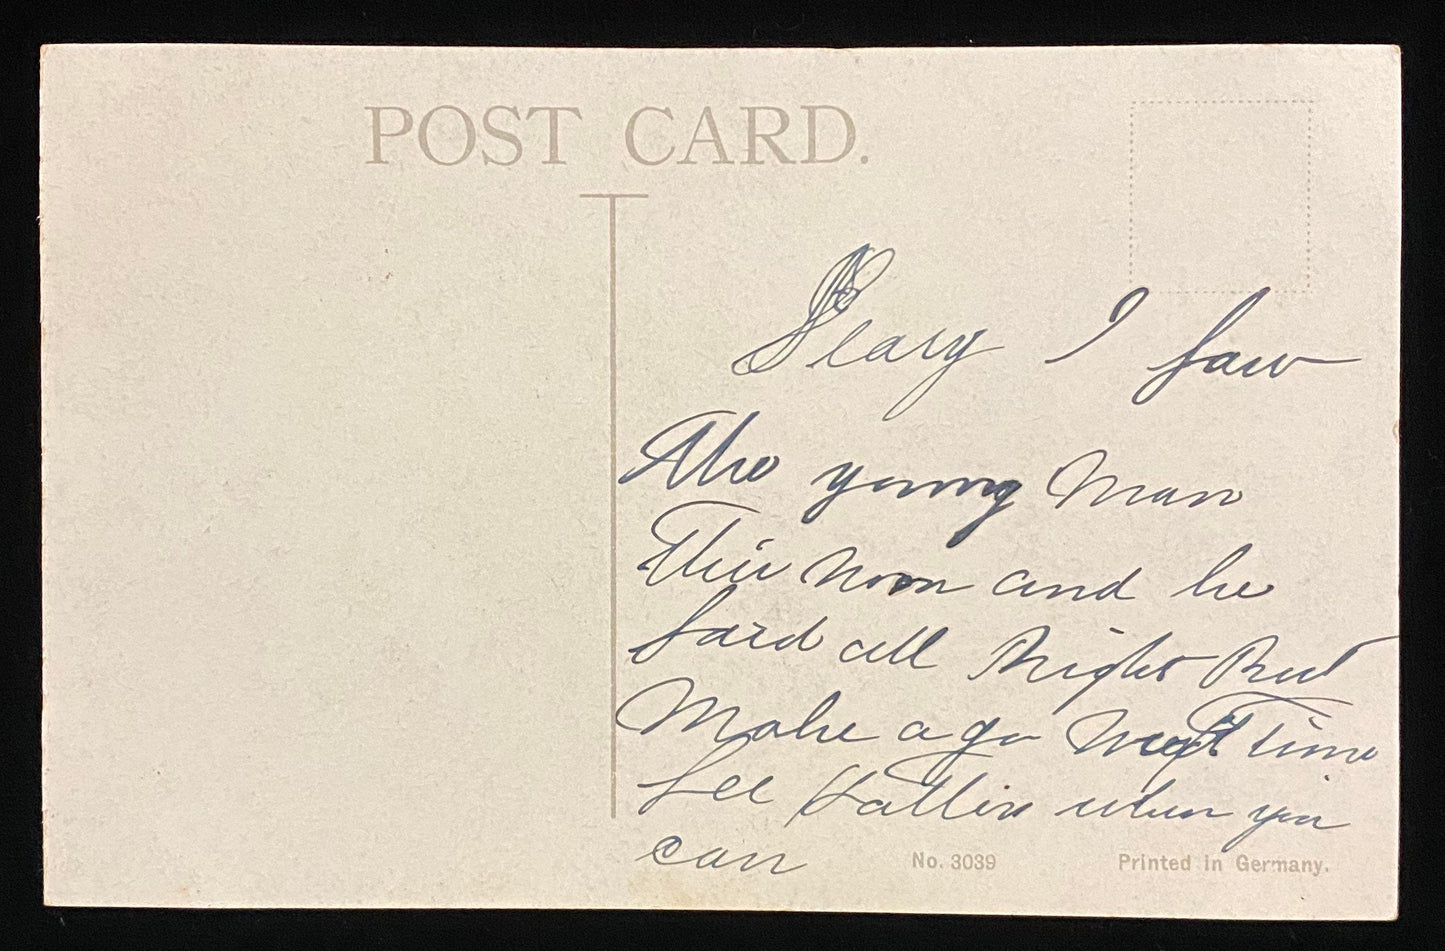 POST CARD.
I saw
the young Man
This noon and he
said all Right But
Make a go next Time
See when you
can
No. 3039 Printed in Germany.